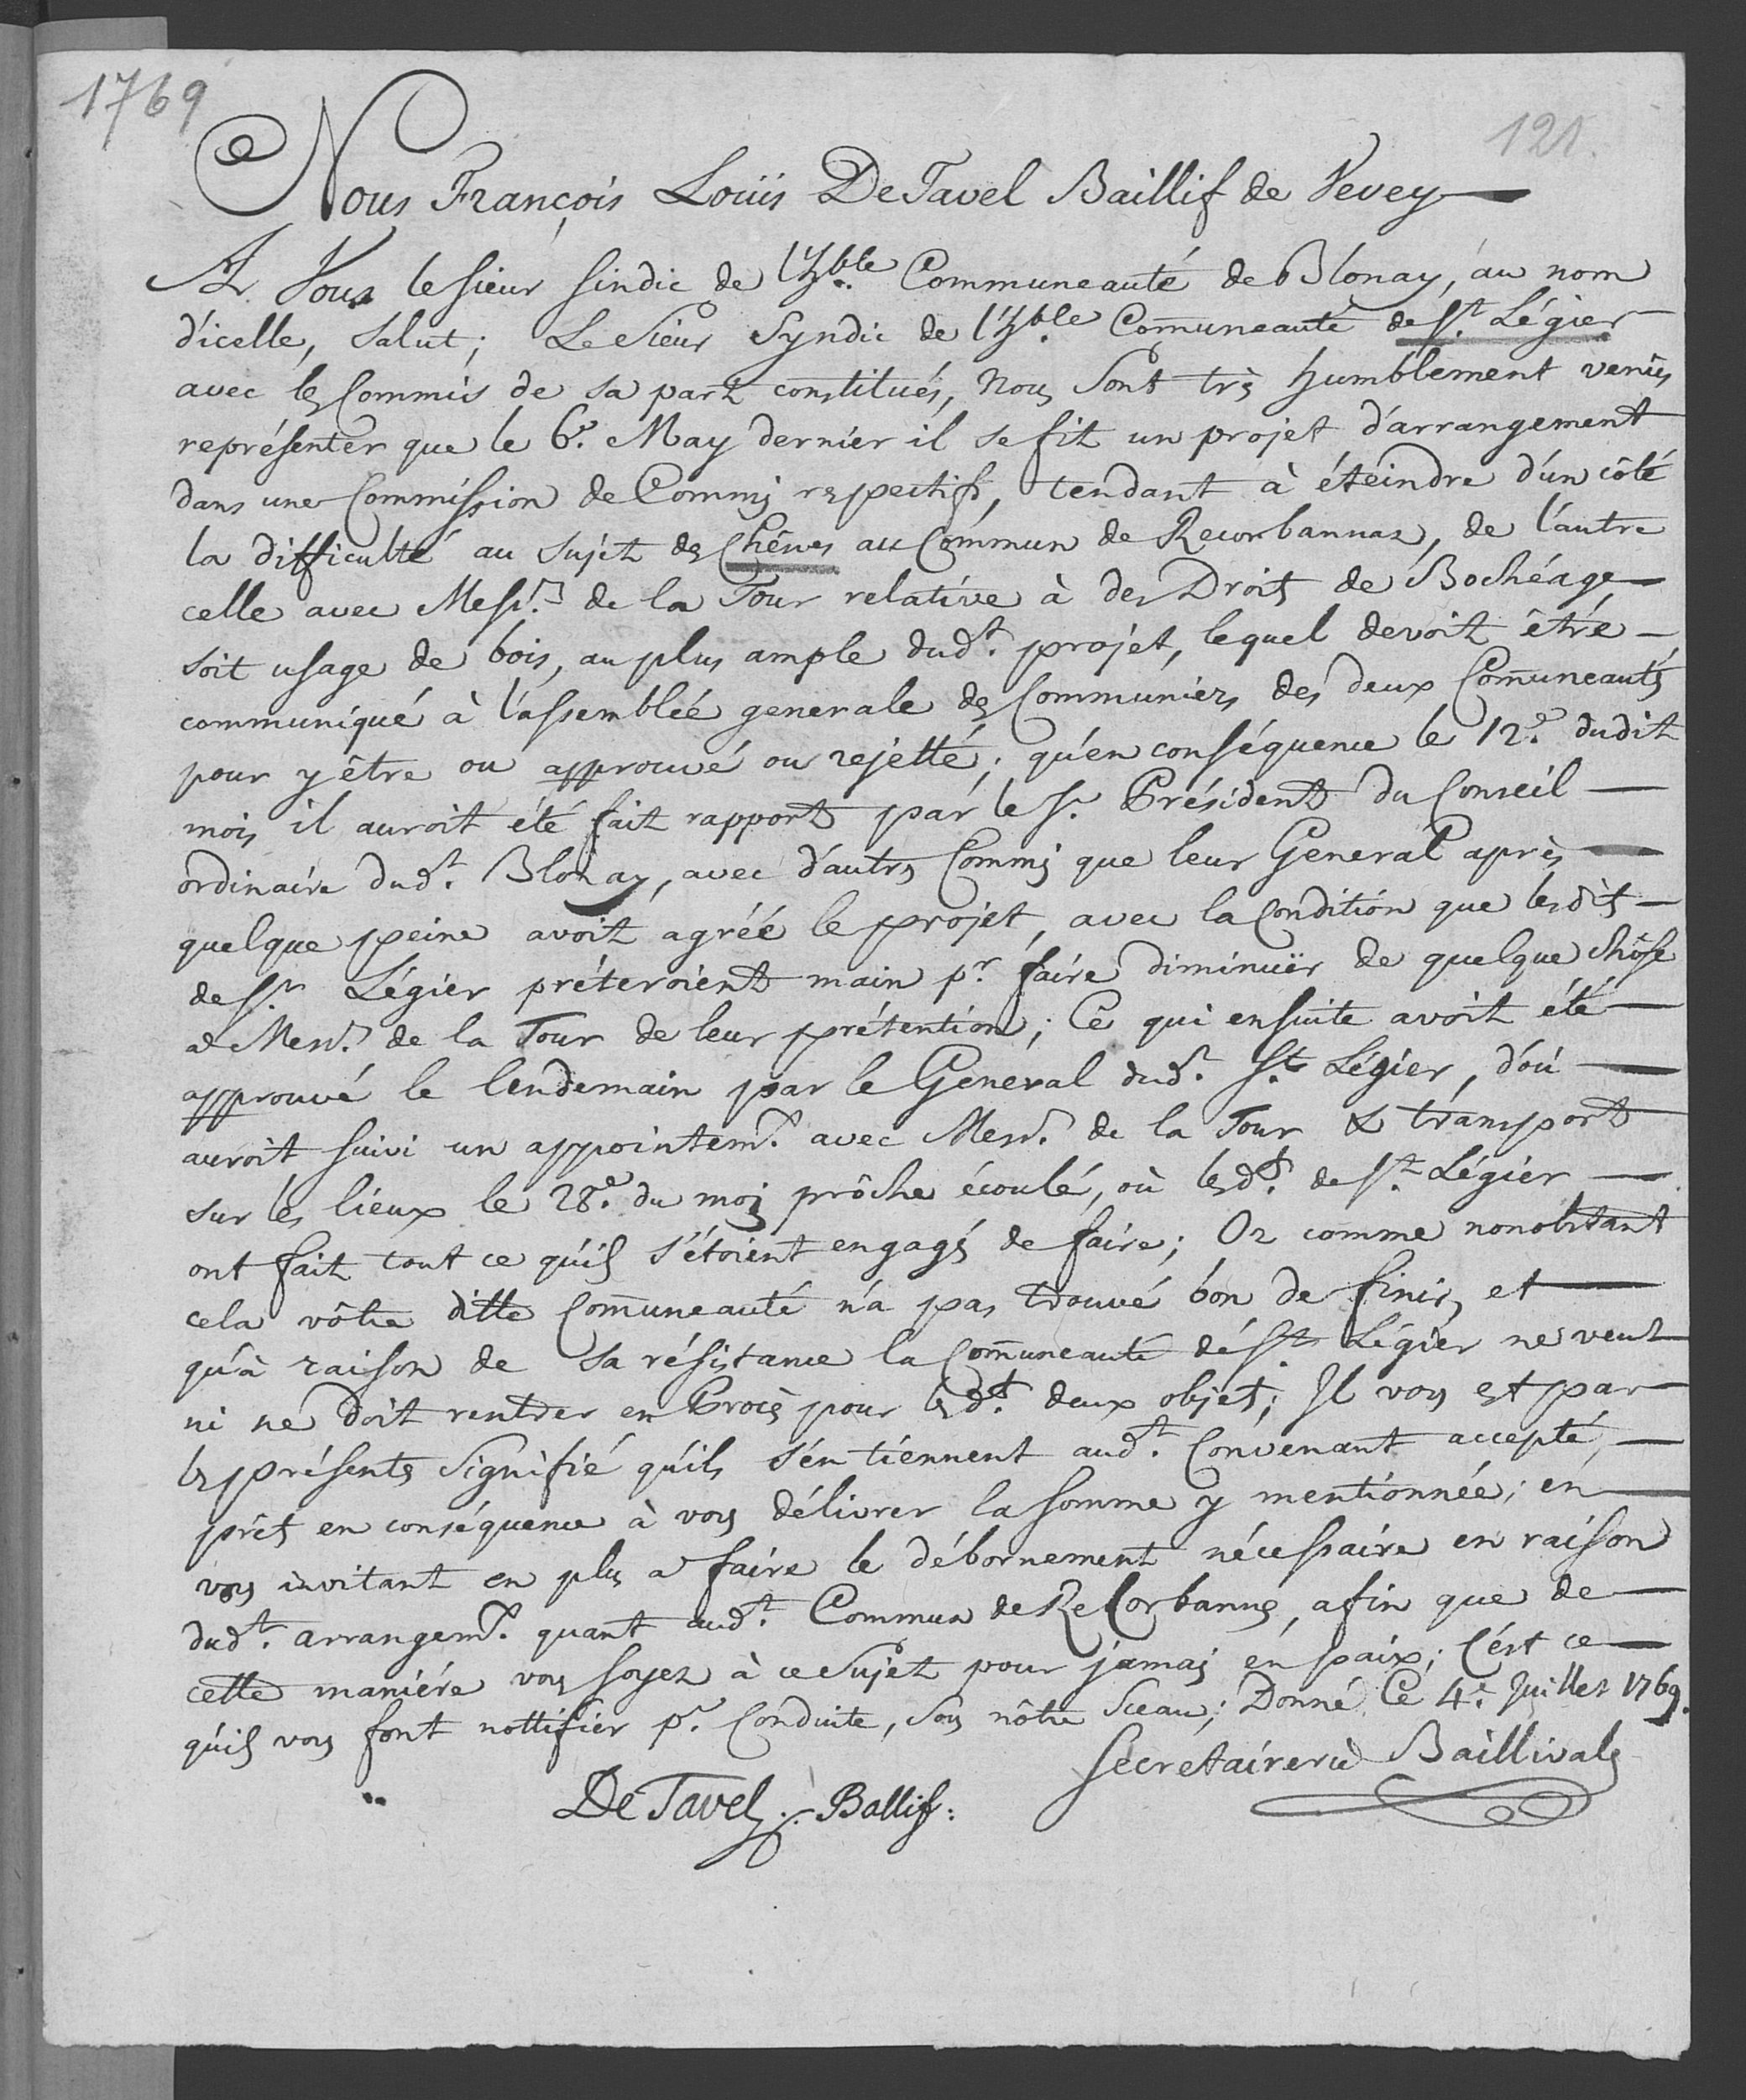 1769
121.
Nous François Louïs DeTavel Baillif de Vevey
A Vous le sieur sindic de l'hble. Communeauté de Blonay, au nom
d'icelle, salut; Le Sieur Syndic de l'hble. Com̄uneauté de St. Légier
avec les Commis de sa part constitués, Nous sont très humblement venus
représenter que le 6e. May dernier il se fit un projet d'arrangement
dans une Commission de Commis respectifs, tendant à éteindre d'un côté
la difficulté au sujet des Chênes au Commun de Recorbannaz, de l'autre
celle avec Messrs. de la Tour relative à des Droits de Bochéage
soit usage de bois, au plus ample dudt. projet, lequel devoit être
communiqué à l'assemblée generale des Communiers des deux Com̄uneautés
pour y être ou approuvé ou rejetté; qu'en conséquence le 12e. dudit
mois il auroit été fait rapport par le Sr. Président du Conseil
ordinaire dudt. Blonay, avec d'autres Commis que leur General après
quelque peine avoit agréé le projet, avec la Condition que lesdits
de St. Légier préteroient main pr. faire diminuër de quelque chôse
a Messrs. de la Tour de leur prétention; Ce qui ensuite avoit été
approuvé le lendemain par le General dudt. St. Légier, d'où
auroit suivi un appointemt. avec Messrs. de la Tour & transport
sur les lieux le 28e. du mois prôche écoulé, où lesdts. de St. Légier
ont fait tout ce qu'ils s'étoient engagés de faire; Or comme nonobstant
cela vôtre ditte Com̄uneauté n'a pas trouvé bon de finir, et
qu'à raison de sa résistance la Com̄uneauté de St. Légier ne veut
ni ne doit rentrer en Procès pour lesdts. deux objets; Il vous est par
les présentes signifié qu'ils s'en tiennent audt. Convenant accepté,
prêts en conséquence à vous délivrer la somme y mentionnée; en
vous invitant en plus a faire le débornement nécessaire en raison
dudt. arrangemt. quant audt. Commun de ReCorbannes, afin que de
cette maniére vous soyez à ce sujet pour jamais en paix; C'est ce
qu'ils vous font nottifier pr. Conduite, sous nôtre Sceau; Donné Ce 4e. Juillet 1769.
Secretairerie Baillivale
De Tavel. Ballif: